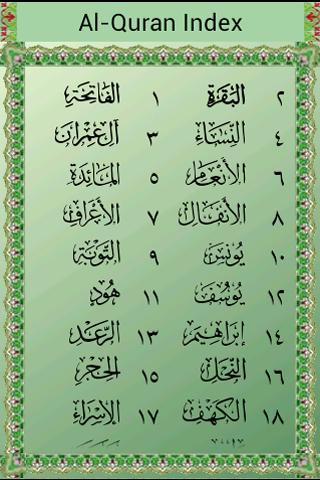 Al-Quran Index
٢ البقرة ١ الفاتحة
٤ النساء ٣ آل عمران
٦ الأنعام ٥ المائدة
٨ الأنفال ٧ الأعراف
١٠ يونس ٩ التوبة
١٢ يوسف ١١ هود
١٤ إبراهيم ١٣ الرعد
١٦ النحل ١٥ الحجر
١٨ الكهف ١٧ الإسراء